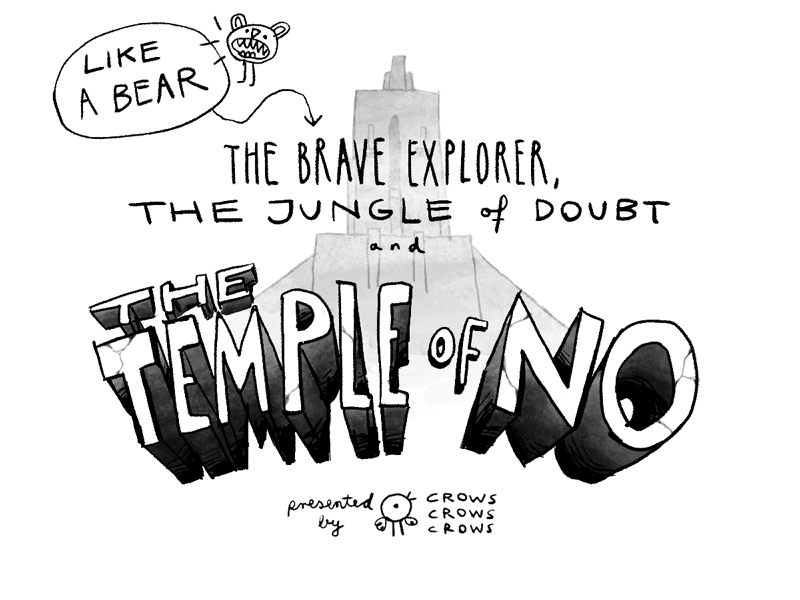 LIKE
A BEAR
THE BRAVE EXPLORER,
THE JUNGLE of DOUBT
and
THE
TEMPLE OF NO
presented
by
CROWS
CROWS
CROWS